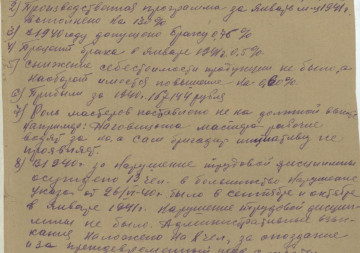 2) Производственная программа за январь м-ц 1941г.
выполнено на 130%
3) в 1940 году допущено браку 0,46%
4) Процент брака в январе 1941г 0.5%
5) Снижение себестоимости продукции не было, а
наоборот имеется повышение на 0,60%
6) Прибыли за 1940г. 167.144 рубля
7) Роль мастеров поставлено не на должной высоте
например: Наговицина мастера рабочие
возят за но, а сам бригадир инициативу не
проявляет.
8) В 1940г за нарушение трудовой дисциплины
осуждено 13 чел. в большинстве нарушение
указа от 26/VI-40г было в сентябре и октябре
в январе 1941г. нарушение трудовой дисцип-
лины не было. Административные взыс-
кания наложено на 8 чел, за опоздание
и за преждевременный